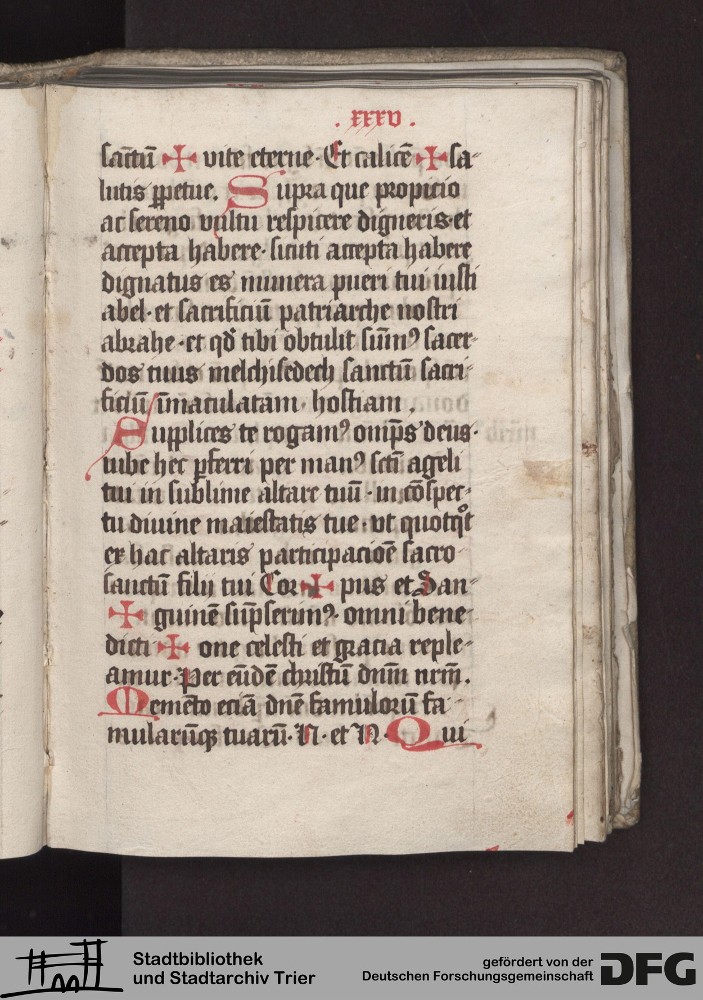 . xxxv .
sāctū ✠ vite eterne · Et calicē ✠ sa-
lutis ꝑpetue. Supra que propicio
ac sereno vultu respicere digneris · et
accepta habere · sicuti accepta habere
dignatus es munera pueri tui iusti
abel · et sacrificiū patriarche nostri
abrahe · et qđ tibi obtulit sūmꝰ sacer-
dos tuus melchisedech sanctū sacri-
ficiū īmaculatam · hostiam .
Supplices te rogamꝰ omp̄s deus ·
iube hec ꝑferri per manꝰ sctī ageli
tui in sublime altare tuū · in cōspec-
tu diuine maiestatis tue · vt quotqͦt
ex hac altaris participacioē sacro
sanctū filij tui Cor ✠ pus et San-
✠ guinē sūpserimꝰ · omni bene-
dicti ✠ one celesti et gracia reple-
amur · Per eūdē christū dn̄m nr̄m .
Memēto eciā dn̄e famulorū fa-
mularūqꝫ tuarū · N · et N · Qui
Stadtbibliothek
und Stadtarchiv Trier
gefördert von der
Deutschen Forschungsgemeinschaft
DFG